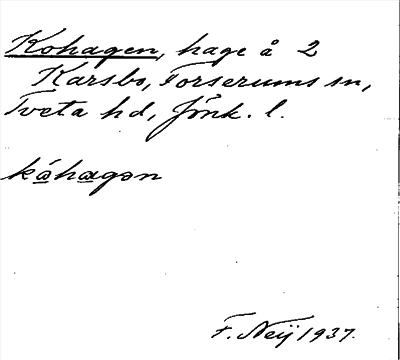 Kohagen, hage å 2
Karsbo, Forserums sn,
Tveta hd, Jönk. l.
kóhagən
F. Neij 1937.